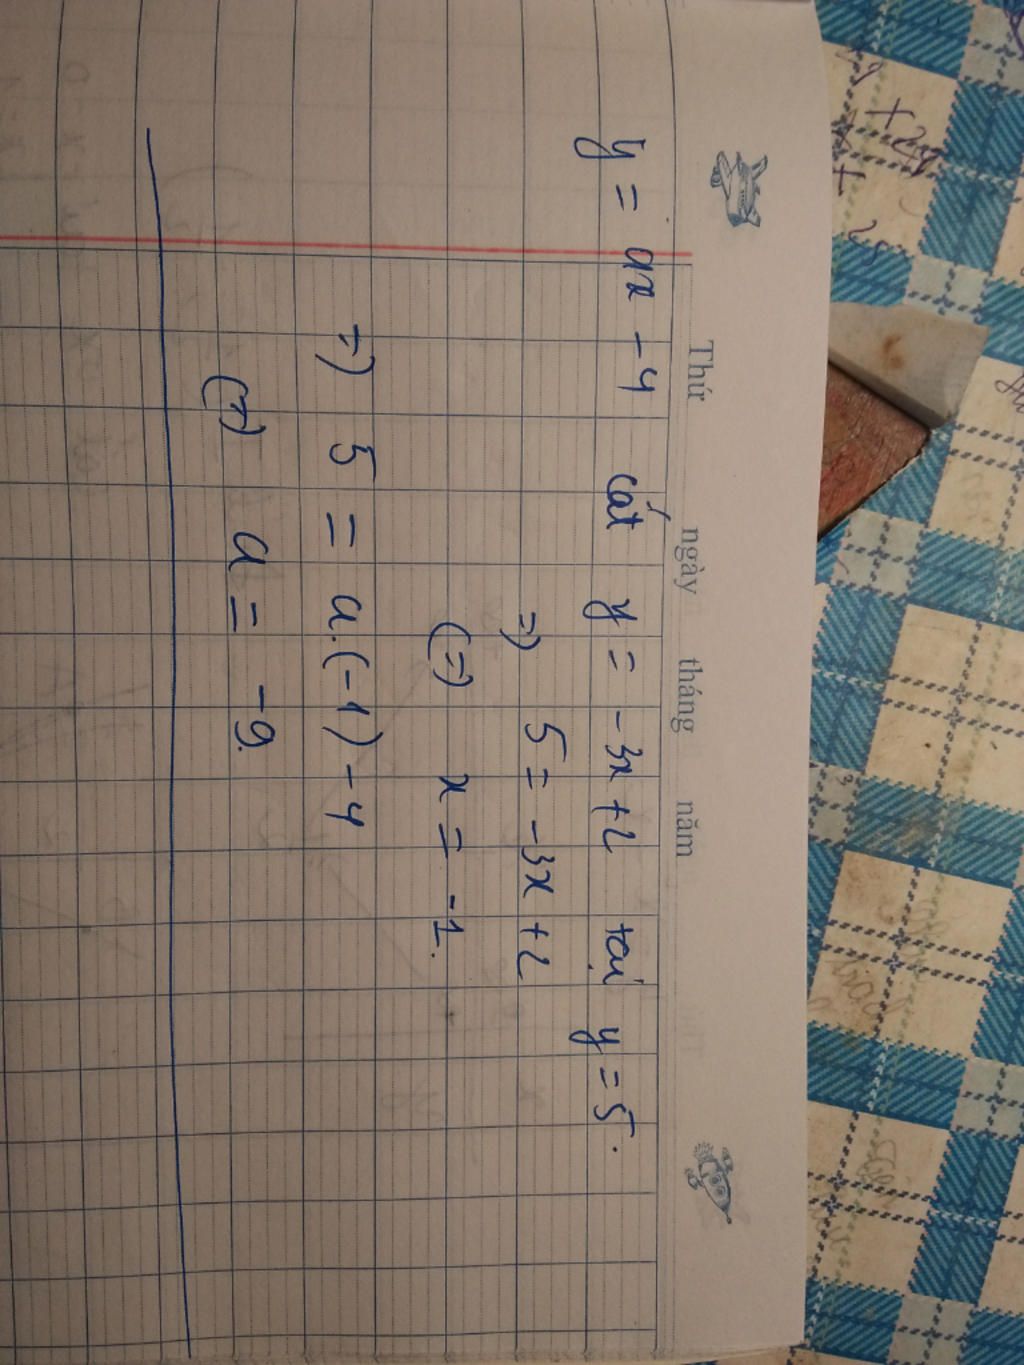 Thứ ngày tháng năm
y = ax - 4 cắt y = -3x + 2 tại y = 5.
=) 5 = -3x + 2
(=) x = -1.
=) 5 = a.(-1) - 4
(=) a = -9.